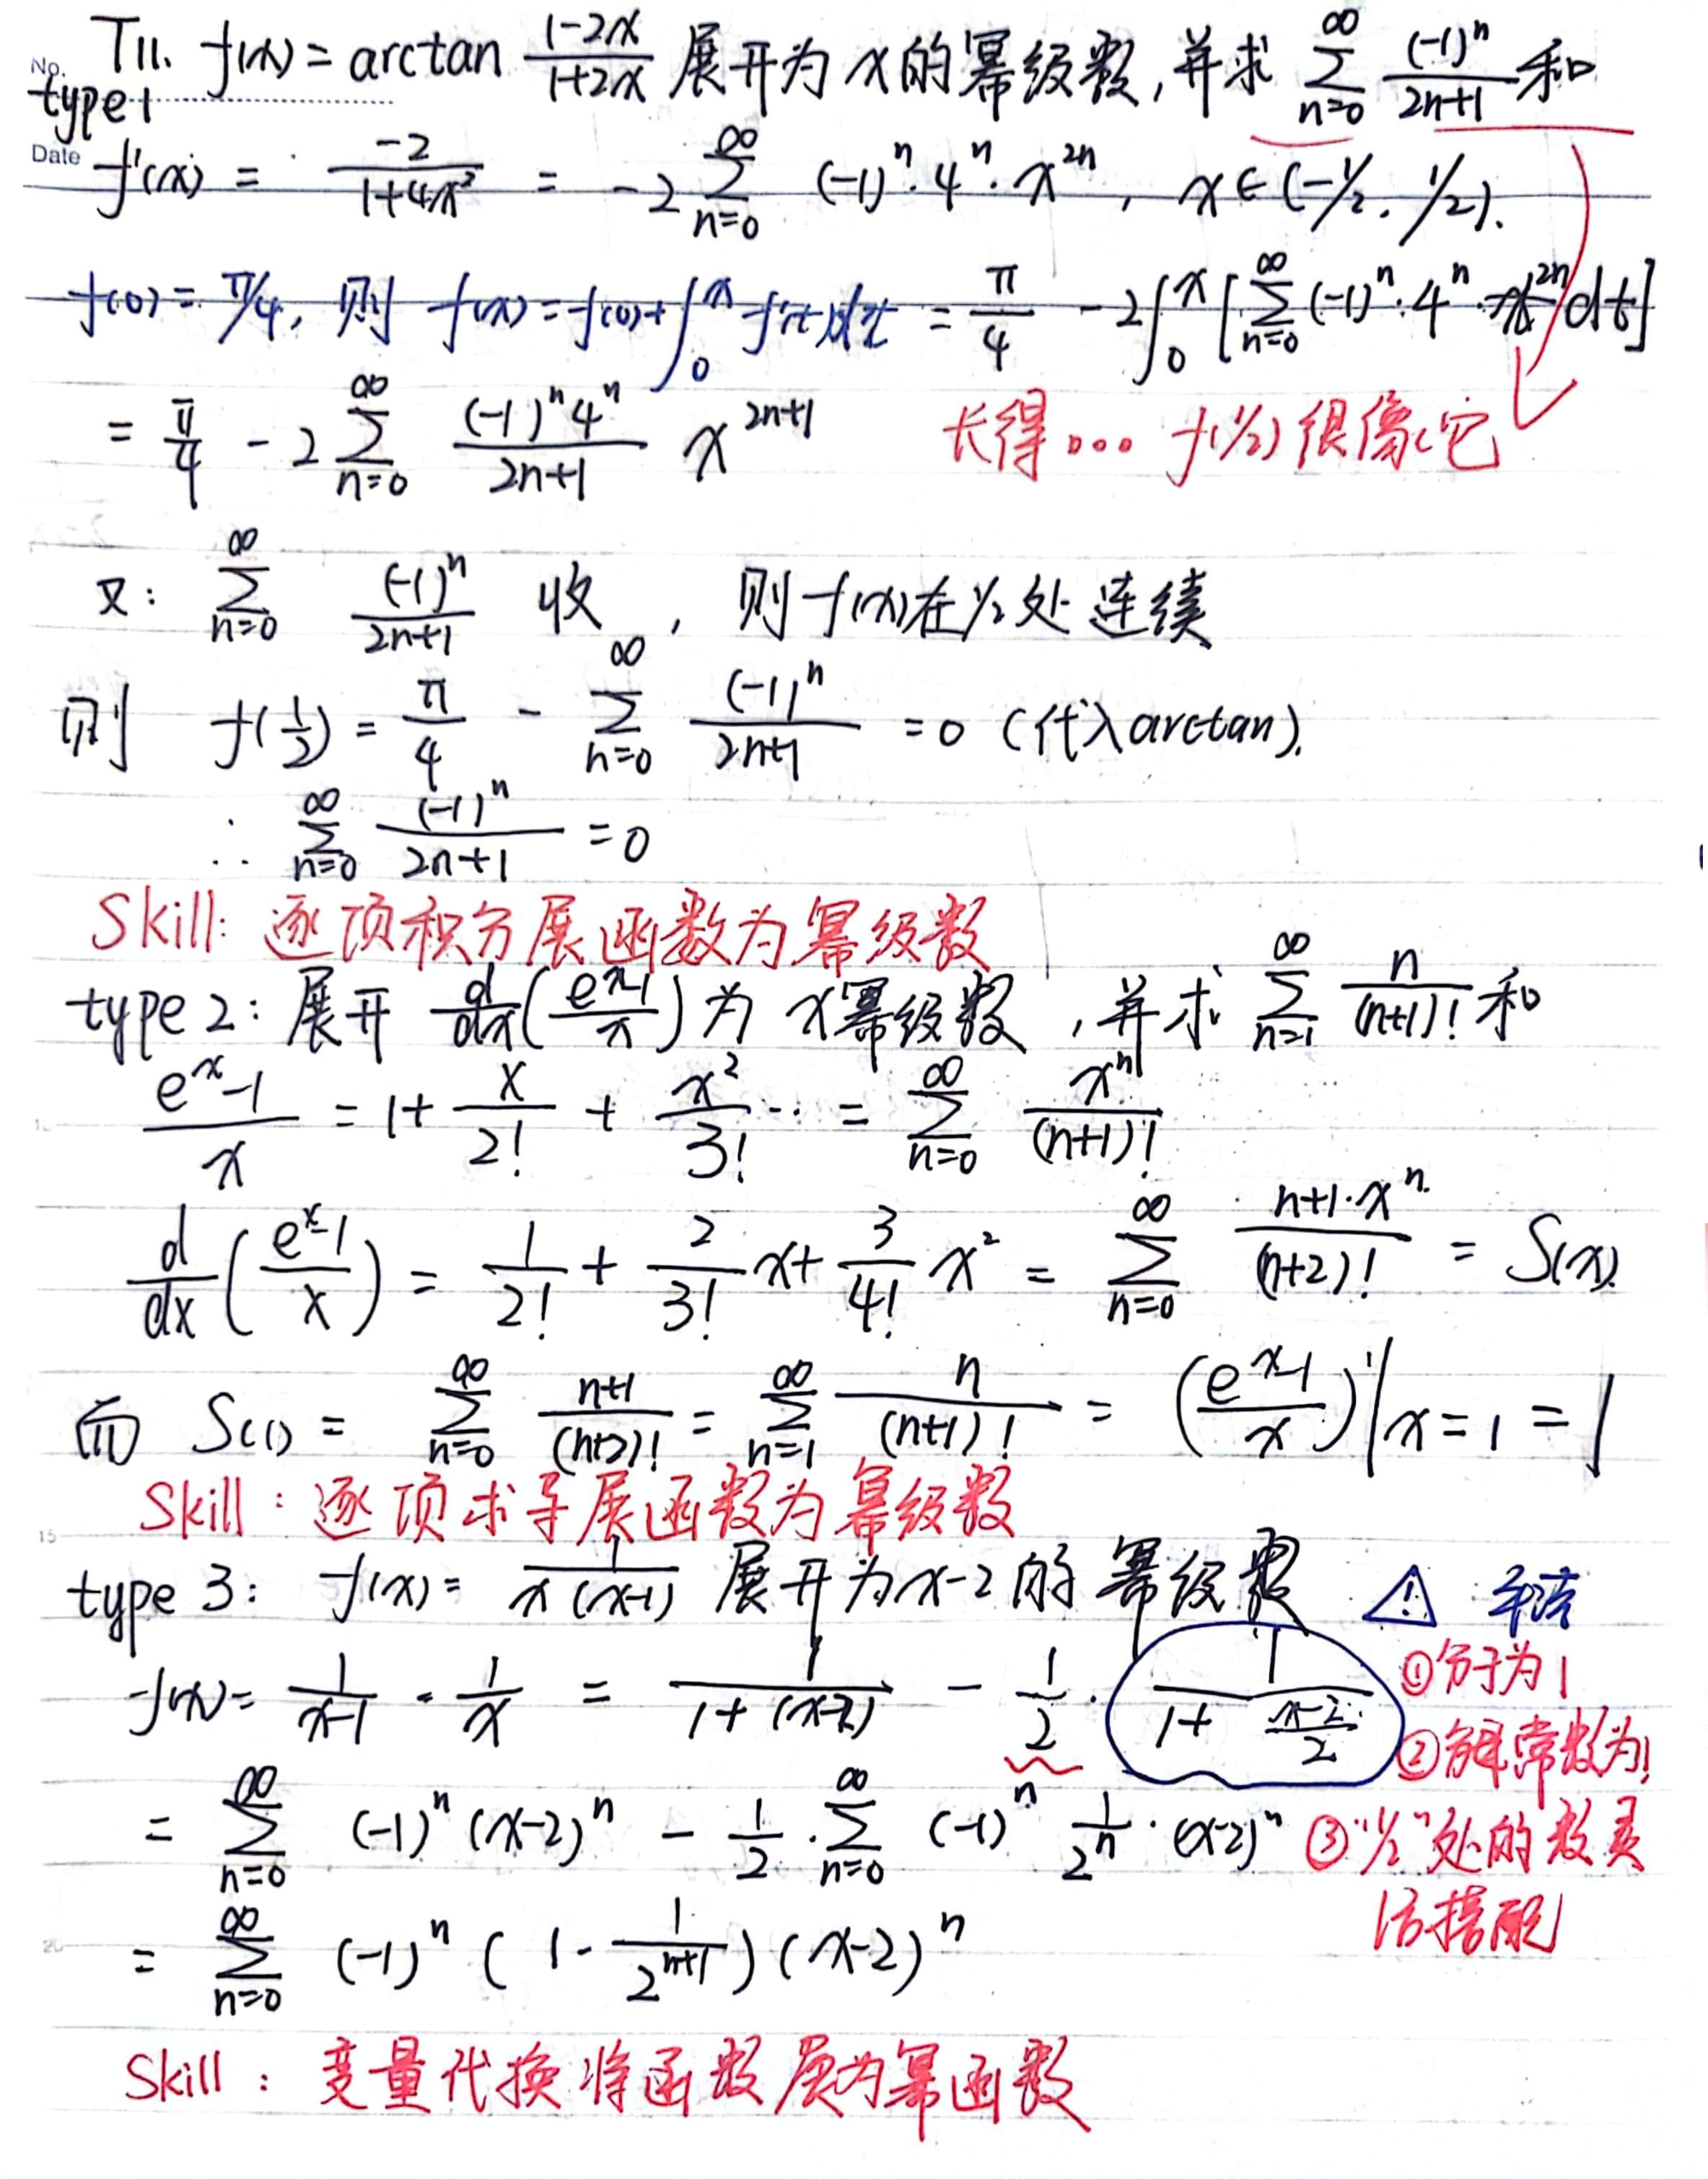 No.
T11. f(x) = arctan (1-2x)/(1+2x) 展开为 x 的幂级数, 并求 ∑_{n=0}^{∞} (-1)^n/(2n+1) 和
type 1
Date
f'(x) = -2/(1+4x²) = -2 ∑_{n=0}^{∞} (-1)^n · 4^n · x^{2n}, x ∈ (-1/2, 1/2).
f(0) = π/4, 则 f(x) = f(0) + ∫_0^x f'(t)dt = π/4 - 2∫_0^x [∑_{n=0}^{∞} (-1)^n · 4^n · t^{2n} dt]
= π/4 - 2 ∑_{n=0}^{∞} (-1)^n 4^n/(2n+1) x^{2n+1}
长得... f(1/2) 很像它
又: ∑_{n=0}^{∞} (-1)^n/(2n+1) 收, 则 f(x) 在 1/2 处连续
则 f(1/2) = π/4 - ∑_{n=0}^{∞} (-1)^n/(2n+1) = 0 (代入 arctan).
∴ ∑_{n=0}^{∞} (-1)^n/(2n+1) = 0
Skill: 逐项积分展函数为幂级数
type 2: 展开 d/dx((e^x-1)/x) 为 x 幂级数, 并求 ∑_{n=1}^{∞} n/(n+1)! 和
(e^x-1)/x = 1 + x/2! + x²/3! ... = ∑_{n=0}^{∞} x^n/(n+1)!
d/dx((e^x-1)/x) = 1/2! + 2/3! x + 3/4! x² = ∑_{n=0}^{∞} n+1·x^n/(n+2)! = S(x).
而 S(1) = ∑_{n=0}^{∞} (n+1)/(n+2)! = ∑_{n=1}^{∞} n/(n+1)! = ((e^x-1)/x)'|x=1 = 1
Skill: 逐项求导展函数为幂级数
type 3: f(x) = 1/(x(x-1)) 展开为 x-2 的幂级数
f(x) = 1/(x-1) - 1/x = 1/(1+(x-2)) - 1/2 · 1/(1+(x-2)/2)
①分子为1
②分母常数为1
= ∑_{n=0}^{∞} (-1)^n (x-2)^n - 1/2 · ∑_{n=0}^{∞} (-1)^n 1/2^n · (x-2)^n
③"1/2"处的数灵
活搭配
= ∑_{n=0}^{∞} (-1)^n (1 - 1/2^{n+1}) (x-2)^n
Skill: 变量代换将函数展为幂函数